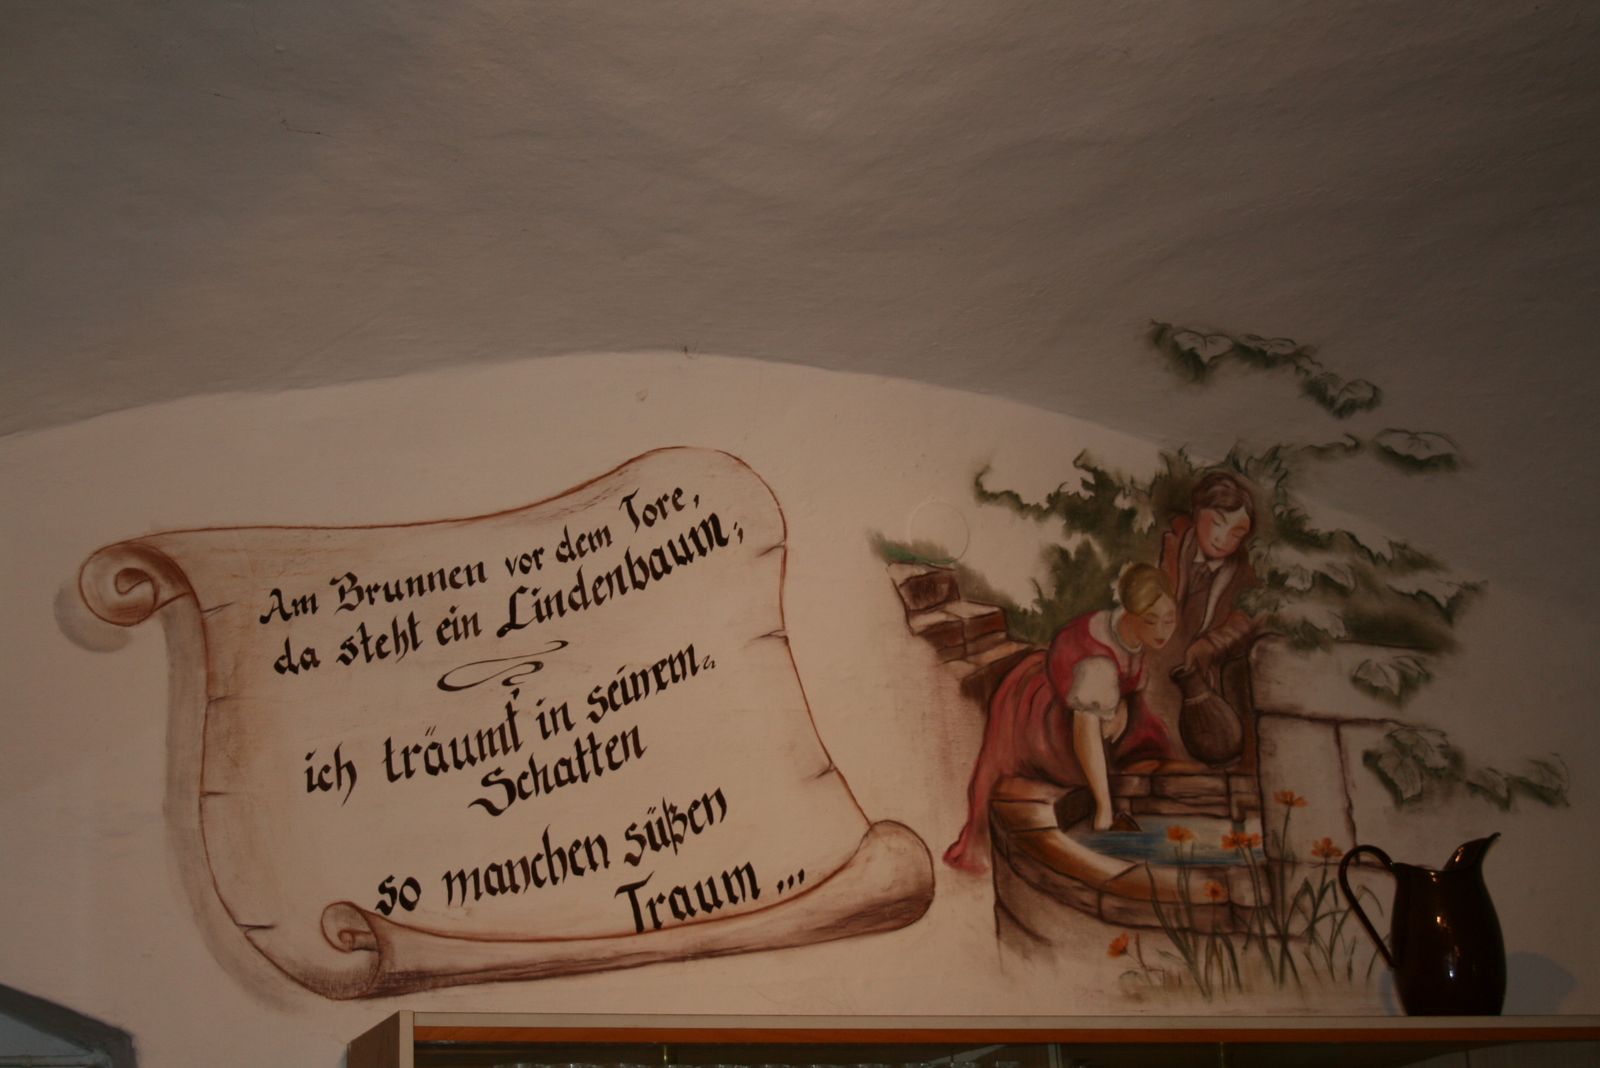 Am Brunnen vor dem Tore,
da steht ein Lindenbaum;
ich träumt in seinem
Schatten
so manchen süßen
Traum ...